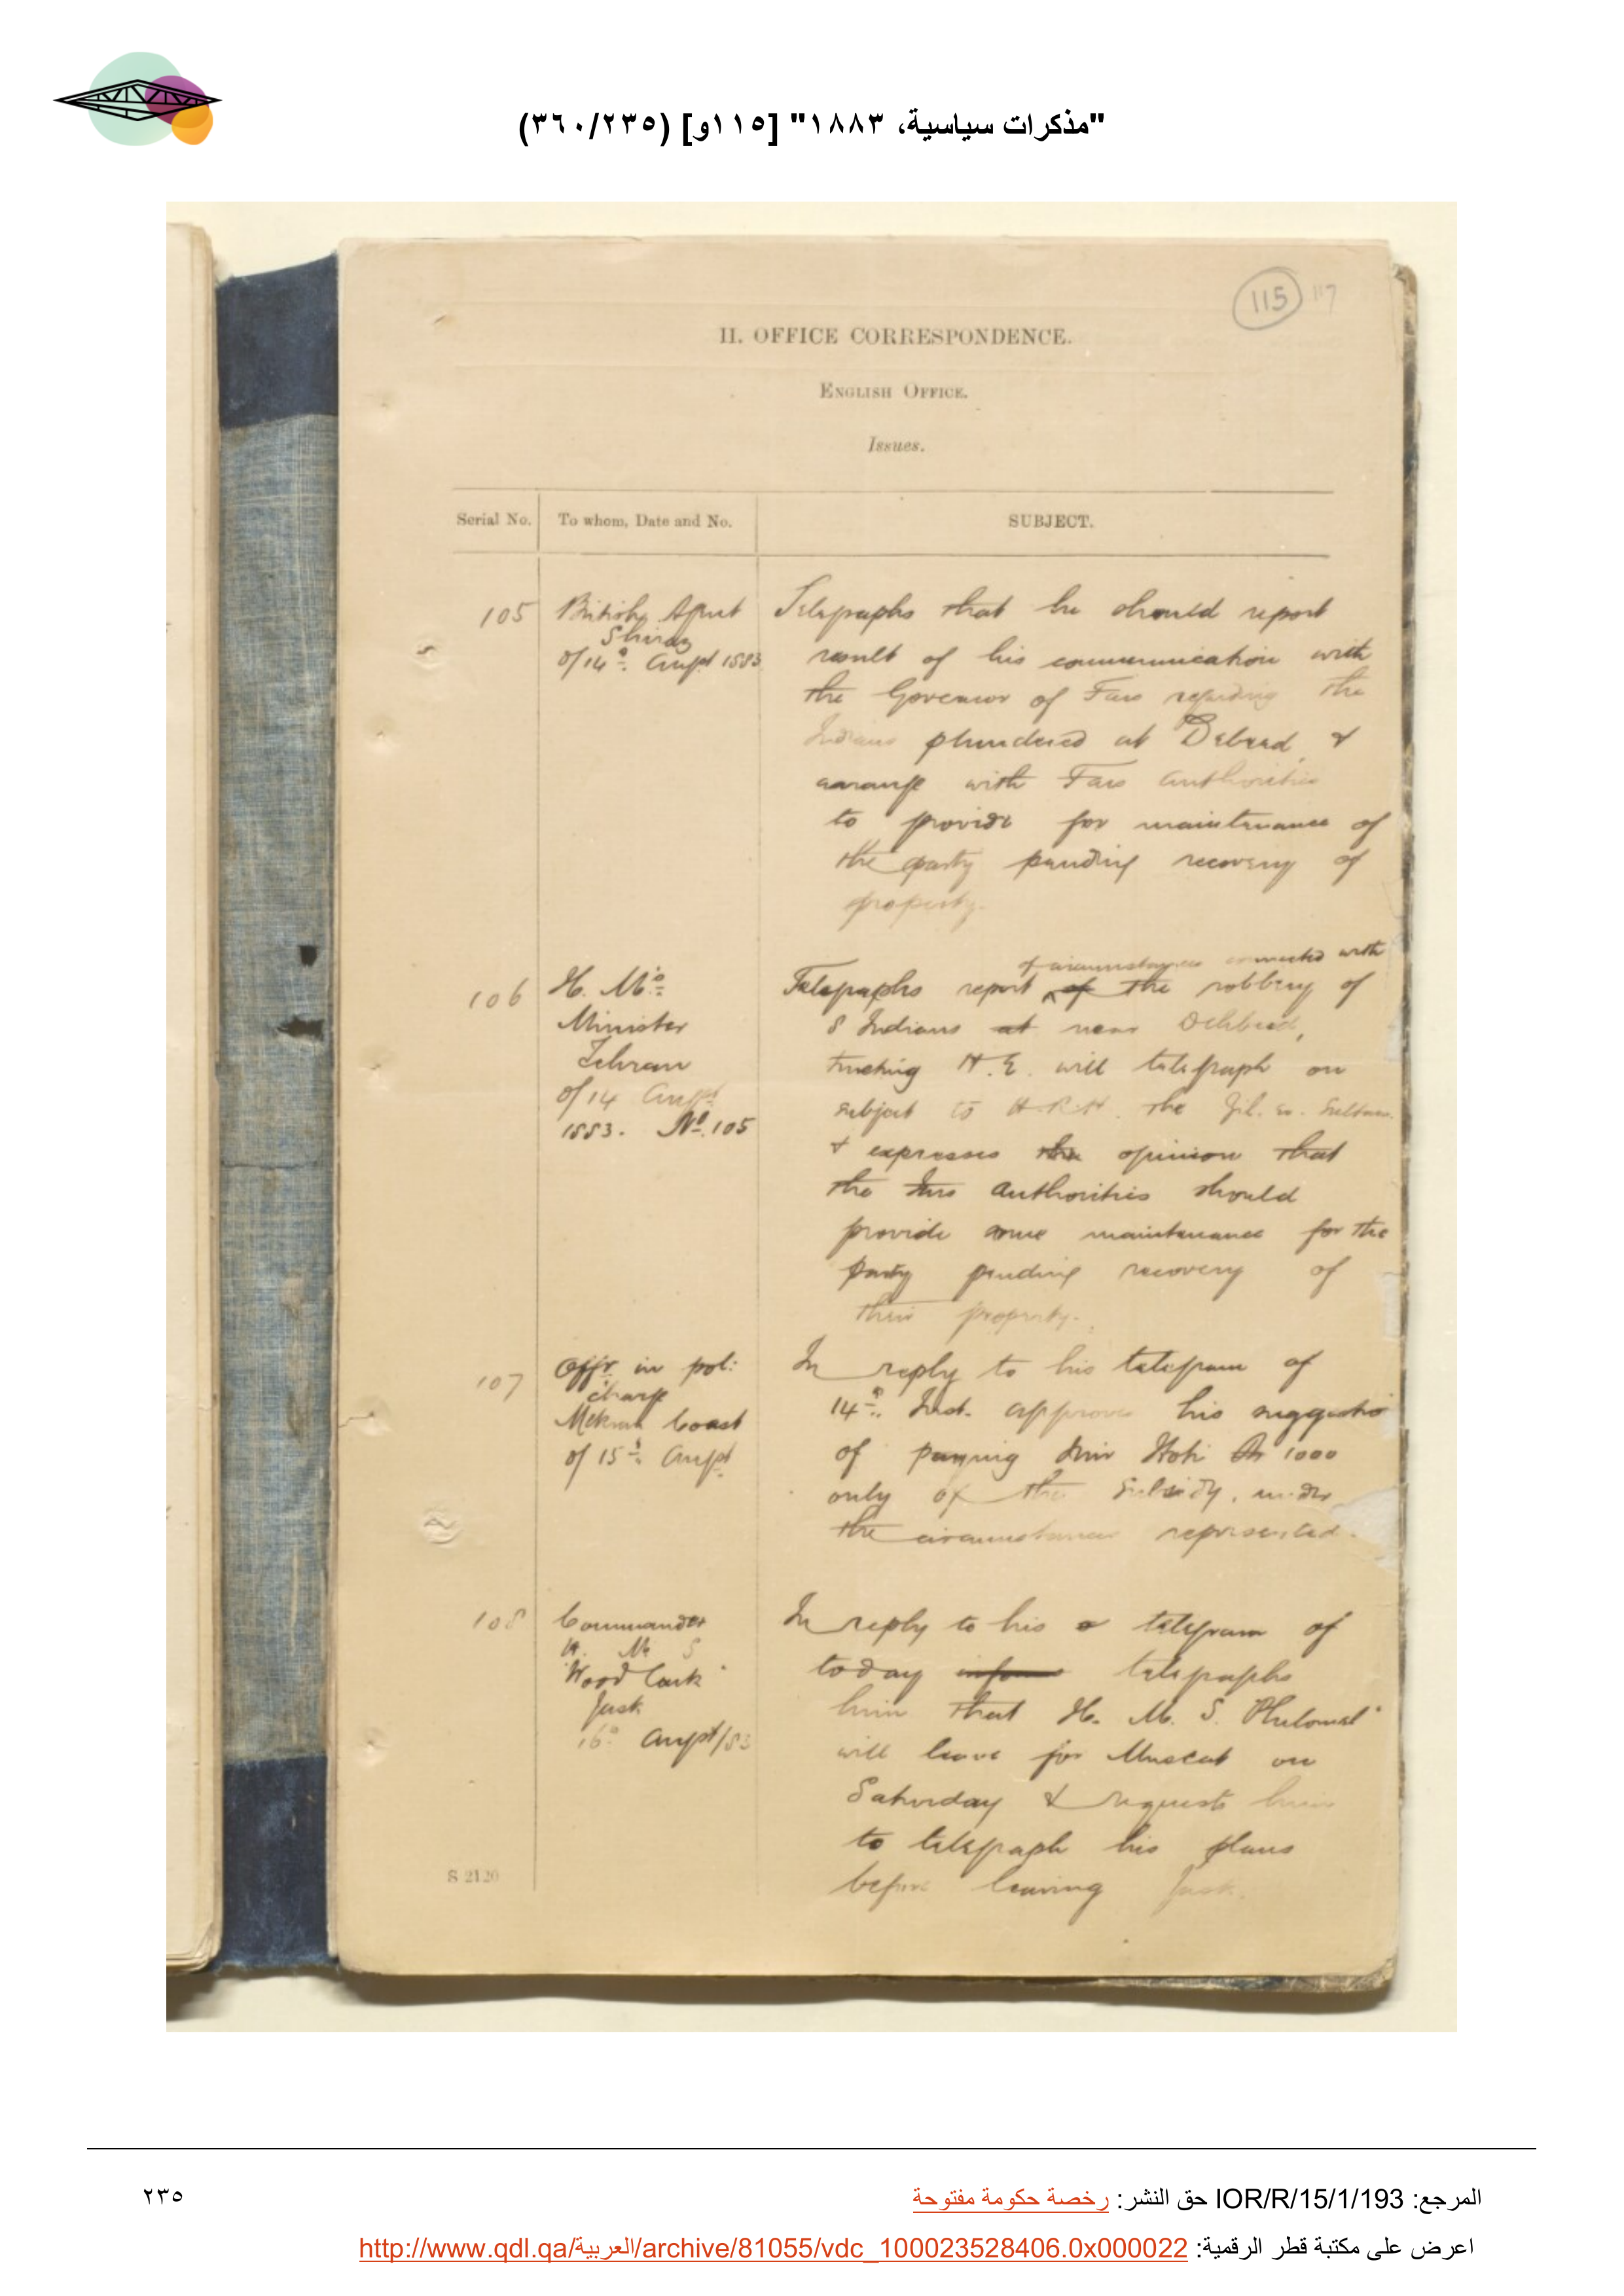 "مذكرات سياسية، ١٨٨٣" [١١٥و] (٣٦٠/٢٣٥)
115 117
II. OFFICE CORRESPONDENCE.
ENGLISH OFFICE.
Issues.
Serial No. To whom, Date and No. SUBJECT.
105 British Agent
Shiraz
of 14th Augst 1883
Telegraphs that he should report
result of his communication with
the Governor of Fars regarding the
Indians plundered at Debeed, &
arrange with Fars Authorities
to provide for maintenance of
the party pending recovery of
property.
106 H. M's
Minister
Tehran
of 14 Augst
1883. No. 105
of circumstances connected with
Telegraphs report of the robbery of
8 Indians at near Dehbeed,
trusting H.E. will telegraph on
subject to H.R.H. the Zil. es. Sultan.
& expresses the opinion that
the Fars authorities should
provide some maintenance for the
party pending recovery of
their property.
107 Offr. in pol:
charge
Mekran Coast
of 15th Augst
In reply to his telegram of
14th Inst. approves his suggestio
of paying Mir Hoti Rs 1000
only of the Subsidy, under
the circumstances represented.
108 Commander
H. M. S
"Woodlark"
Jask
16th Augst/83
In reply to his telegram of
today inform telegraphs
him that H. M. S. "Philomel"
will leave for Muscat on
Saturday & requests him
to telegraph his plans
before leaving Jask.
S 2120
المرجع: IOR/R/15/1/193 حق النشر: رخصة حكومة مفتوحة
٢٣٥
اعرض على مكتبة قطر الرقمية: http://www.qdl.qa/العربية/archive/81055/vdc_100023528406.0x000022